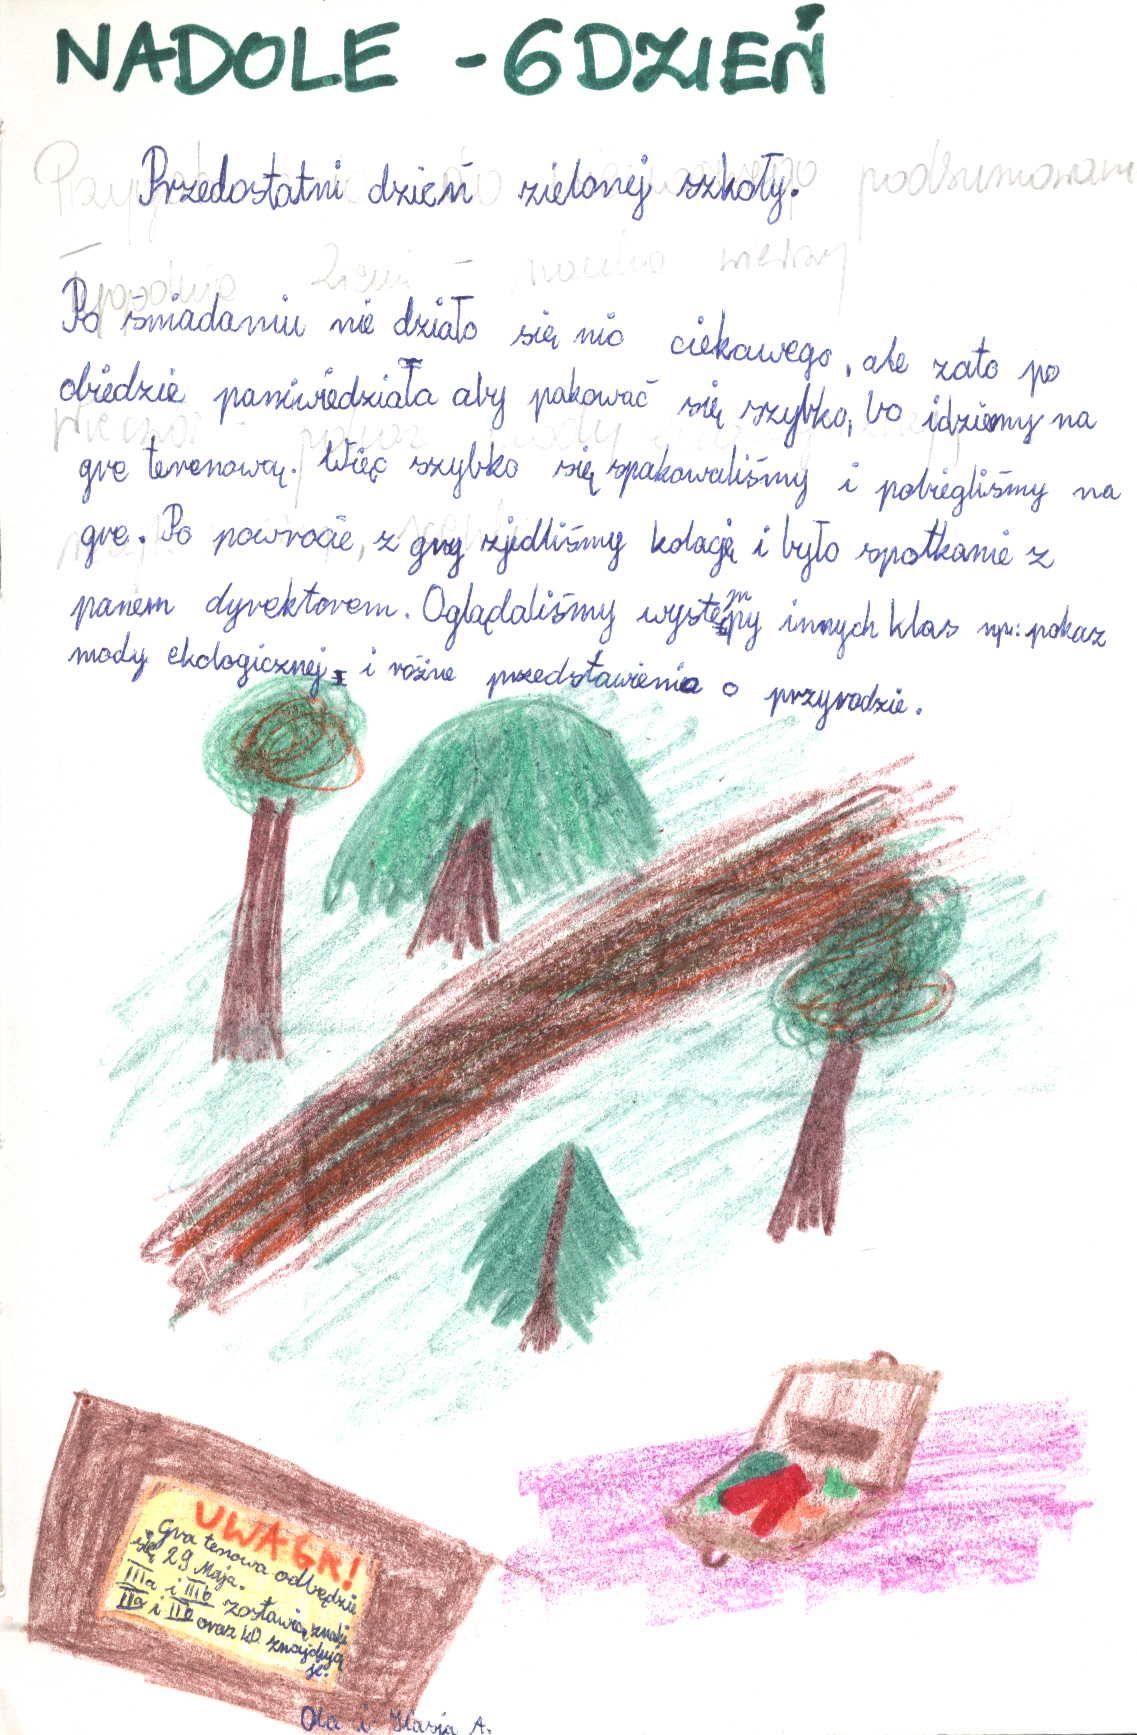 NADOLE - 6 DZIEŃ
Przedostatni dzień zielonej szkoły.
Po śniadaniu nie działo się nic ciekawego, ale zato po
obiedzie pani wiedziała aby pakować się szybko, bo idziemy na
grę terenową. Więc szybko się spakowaliśmy i pobiegliśmy na
grę. Po powrocie, z gry zjedliśmy kolację i było spotkanie z
panem dyrektorem. Oglądaliśmy występy innych klas np: pokaz
mody ekologicznej i różne przedstawienia o przyrodzie.
UWAGA!
Gra tenowa odbędzie
się 29 Maja.
IIIa i IIIb zostawią znaki
IIa i IIb oraz kl. 0 znajdują
je.
Ola i Kasia A.